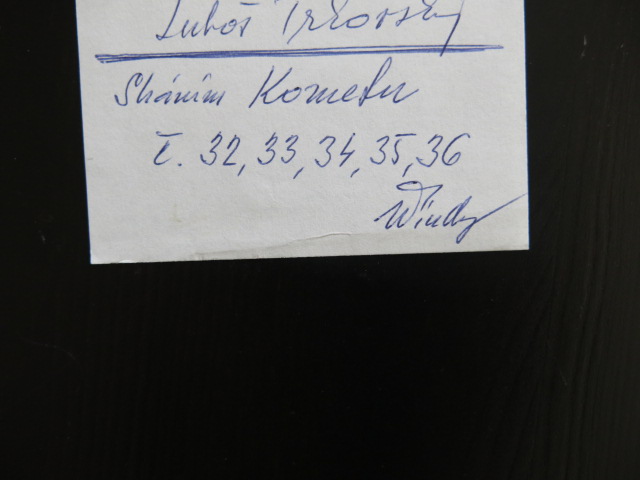 Luboš Trkovský
Sháním Kometu
č. 32, 33, 34, 35, 36
Windy